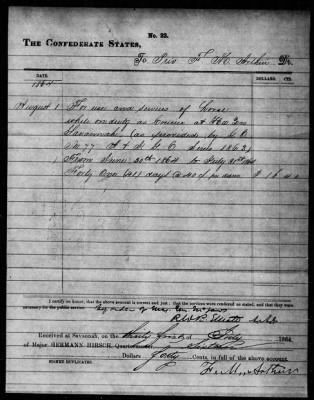 No. 22.
THE CONFEDERATE STATES,
To F. M. Dr.
DATE. DOLLARS. CTS.
1864
August 1 For use and service of horse
while on duty as Courier at Hd Qrs
Savannah, (as provided by G.O.
No 77 A & I G O 1863)
From June 20th 1864 to July 31st
Forty One (41) days @ 40¢ per diem $ 16 40
I certify on honor, that the above account is correct and just; that the services were rendered as stated, and that they were
necessary for the public service. By order of
Received at Savannah, on the 1864,
of Major HERMANN HIRSCH, Quartermaster,
Dollars forty Cents, in full of the above account.
SIGNED DUPLICATES.